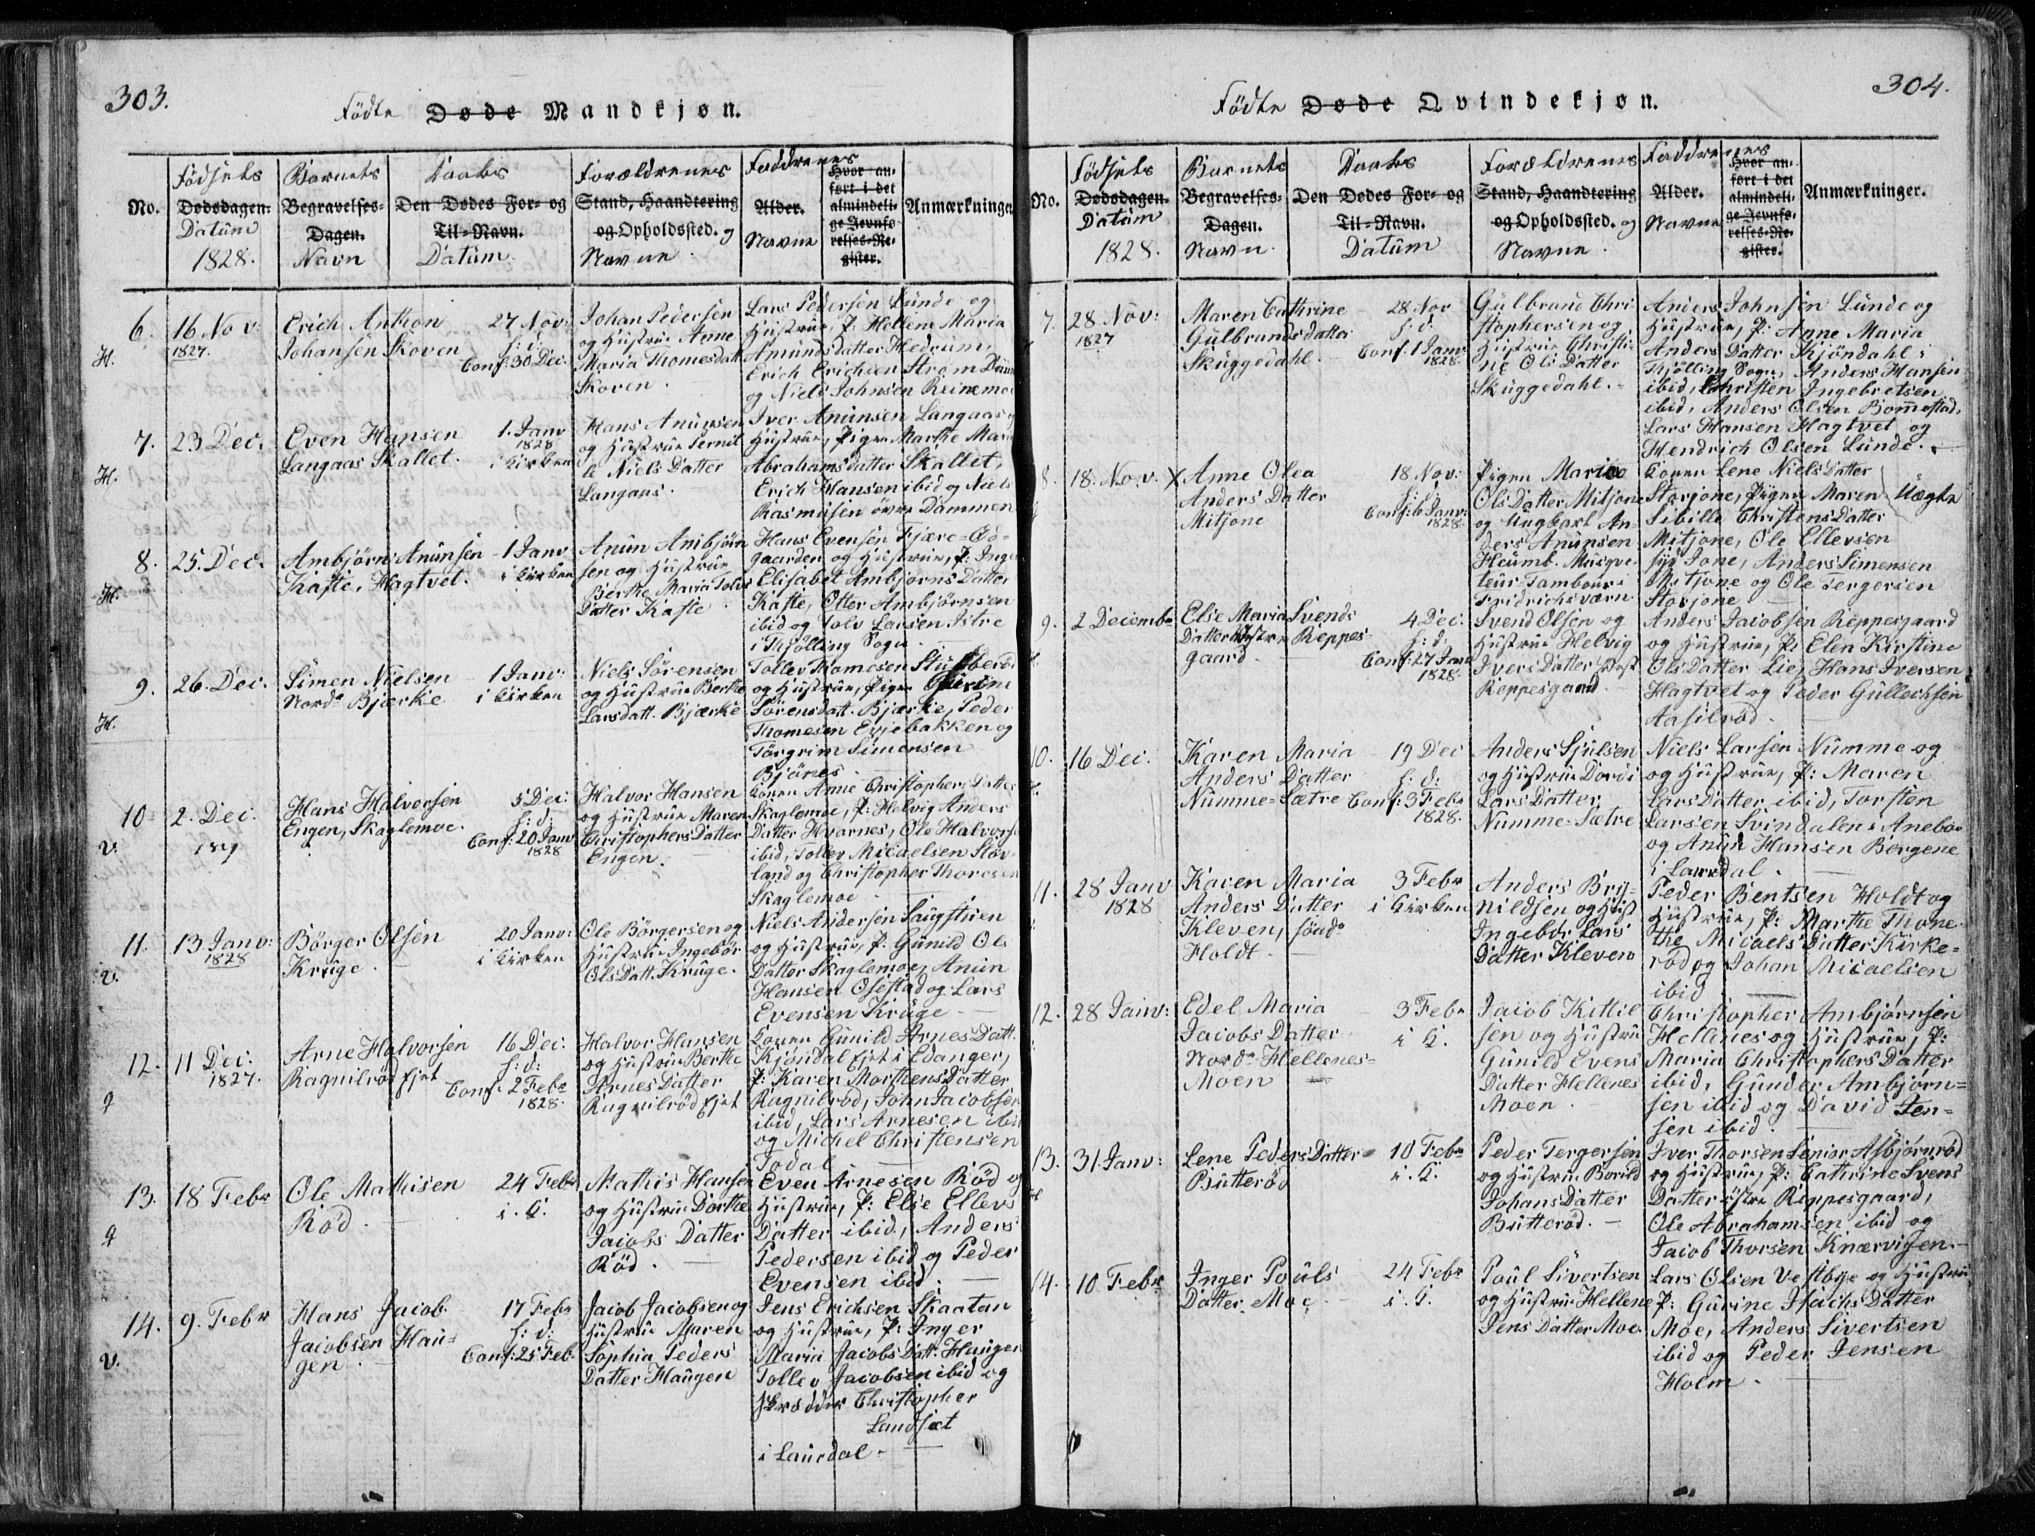 303.
Fødte Døde Mandkjøn.
No.
Fødsels
Dødsdagen.
Datum
1828.
Barnets
Begravelses-
Dagen.
Navn
Daabs
Den Dødes For- og
Til-Navn.
Datum.
Forældrenes
Stand, Haandtering
og Opholdssted. og
Navne.
Faddrenes
Alder.
Navne
Hvor an-
ført i det
almindeli-
ge Jevnfø-
relses-Re-
gister.
Anmærkninger
6.
H.
16 Nov:
1827.
Erich Anthon
Johansen Skoven
27 Nov:
h: d:
Conf: 30 Dec:
Johan Pedersen
og Hustrue Anne
Maria Thomesdatt
Skoven.
Lars Pedersen Lunde og
Hustrue, P: Hellene Maria
Amundsdatter Hedrum,
Erich Erichsen Strøm
og Niels Johnsen Reinemoe
7.
H.
23 Dec:
Even Hansen
Langaas Skallet.
1. Janv
1828
i Kirken
Hans Anunsen
og Hustrue Pernil
le Niels Datter
Langaas.
Iver Anunsen Langaas
Hustrue, Pigen Marthe Maria
Abrahamsdatter Skallet,
Erich Hansen ibid og Niels
Rasmusen øvre Dammen
8.
H.
25. Dec.
Ambjørn Anunsen
Kaste, Hagtvet.
1 Janv
i Kirken
Anun Ambjørn
sen og Hustrue
Berthe Maria Tolvs
Datter Kaste.
Hans Evensen Fjære-Ød-
gaarden og Hustrue, P. Inge
Elisabet Ambjørns Datter
Kaste, Otter Ambjørnsen
ibid og Tolv Larsen Istre
i Thjølling Sogn.
9.
H.
26. Dec.
Simen Nielsen
Nord Bjerke
1 Janv:
i Kirken
Niels Sørensen
og Hustrue Berthe
Larsdatt. Bjærke
Tollev Thomesen
og Hustrue, Pigen
Sørensdatt. Bjærke, Peder
Thomesen Eviebakken og
Torgrim Simensen
Bjønes.
10.
V.
2. Dec.
Hans Halvorsen
Engen, Skaglemoe.
5 Dec:
h: d:
Conf: 20 Janv
1828
Halvor Hansen
og Hustrue Maren
Christophers Datter
Engen.
Konen Anne Christophers Datter
Skaglemoe, P: Helvig Anders
Datter Hvarnes, Ole Halvors
ibid, Tollev Micaelsen Støv-
land og Christopher Thoresen
Skaglemoe
11.
V.
13 Janv:
1828
Børger Olsen
Kruge.
20 Janv:
i Kirken
Ole Børgersen og
Hustrue Ingebør
OlsDatt. Kruge.
Niels Andersen Saugstuen
og Hustrue, P: Gunild Ols
Datter Skaglemoe, Anun
Hansen Osestad og Lars
Evensen Kruge
12.
11 Dec:
1827.
Arne Halvorsen
Ragnilrødejet
16 Dec:
h: d:
Conf: 2 Febr
1828.
Halvor Hansen
og Hustrue Berthe
Arnes Datter
Ragnilrødejet
Konen Gunild Arnes Datt.
Kjøndal ejet i Edanger,
P: Karen Mortens Datter
Ragnilrød, John Jacobsen
ibid, Lars Arnesen ibid
og Michel Christensen
Jodal
13.
18 Febr
Ole Mathisen
Rød.
24 Febr
i. K.
Mathis Hansen
og Hustrue Dorthe
Jacobs Datter
Rød.
Even Arnesen Rød og
Hustrue, P: Else Ellevs
Datter ibid, Anders
Pedersen ibid og Peder
Evensen ibid.
14.
V.
9. Febr
Hans Jacob
Jacobsen Hau-
gen
17 Febr
h: d:
Conf: 25 Feb.
Jacob Jacobsen og
Hustrue Maren
Sophia Peders
Datter Haugen
Jens Erichsen Skaatan
og Hustrue, P: Inger
Maria Jacobs Datt. Haugen
Tollev Jacobsen ibid og
Skrædder Christopher
Landset
i Laurdal.
304.
Fødte Døde Qvindekjøn.
No.
Fødsels
Dødsdagen.
Datum
1828.
Barnets
Begravelses-
Dagen.
Navn.
Daabs
Den Dødes For- og
Til-Navn.
Datum
Forældrenes
Stand, Haandtering
og Opholdssted. og
Navne.
Faddrenes
Alder.
Navne
Hvor an-
ført i det
almindeli-
ge Jevnfø-
relses-Re-
gister.
Anmærkninger.
7.
28 Nov:
1827
Maren Cathrine
Gulbrands datter
Skuggedahl.
28 Nov
h: d:
Conf. 1 Janv
1828.
Gulbrand Chri
stophersen og
Hustrue Christi-
ne Ols Datter
Skuggedahl.
Anders Johnsen Lunde og
Hustrue, P: Anne Maria
Anders Datter Kjøndahl i
Thjølling Sogn, Anders Hansen
ibid, Christen Ingebretsen
ibid, Anders Olsen Bommestad,
Lars Hansen Hagtvet og
Hendrich Olsen Lunde.
8.
18. Nov.
X Anne Olea
Anders Datter
Mitjone
18 Nov:
h: d:
Conf: 6 Janv:
1828.
Pigen Maria
Ols Datter Mitjone
og Ungkarl An-
ders Anunsen
Heumb. Musqve-
teur Tambour i
Fridrichsværn.
Konen Lene Niels Datter
Storjone, Pigen Maren
Sibille Christens Datter
Mitjone, Ole Ellevsen
Jone, Anders Simensen
Mitjone og Ole Tergersen
Storjone
Uægte
9.
2 Decembr
Else Maria Svends
Datter Reppes-
gaard.
4 Dec.
h: d:
Conf: 27 Janv
1828.
Svend Olsen og
Hustrue Helvig
Ivers Datter
Reppesgaard
Anders Jacobsen Reppesgaard
og Hustrue, P: Elen Kirstine
Ols Datter Lie, Hans Iversen
Hagtvet og Peder Gullechsen
Aasilrød.
10.
16 Dec.
Karen Maria
Anders Datter
Numme-Sætre
19 Dec
h: d:
Conf: 3 Febr
1828.
Anders Sjulsen
og Hustrue Dordi
Lars Datter
Numme-Sætre
Niels Larsen Numme og
og Hustrue, P: Maren
Lars Datter ibid, Torsten
Larsen Svindalen i Anebo-
og Anun Hansen Bergene
i Laurdal.
11.
28 Janv
1828
Karen Maria
Anders Datter
Kleven, sønd
Holdt.
3 Febr
i Kirken
Anders Bry-
nildsen og Hust
Ingebor Lars
Datter Kleven
Peder Bentsen Holdt og
Hustrue, P: Marthe Thone
the Micaels Datter Kirke-
rød og Johan Micaelsen
ibid
12.
28 Janv:
Edel Maria
Jacobs Datter
Nord Hellenes-
Moen
3 Febr
i K.
Jacob Kittil
sen og Hustrue
Gunild Evens
Datter Hellenes
Moen.
Christopher Ambjørnsen
Hellenes og Hustrue, P:
Maria Christophers Datter
ibid, Gunder Ambjørn-
sen ibid og David Jen-
sen ibid.
13.
31 Janv:
Lene Peders Datter
Butterød
10 Febr
i. K.
Peder Tergersen
og Hustrue Boruld
Johans Datter
Butterød.
Iver Thorsen Senior Asbjørnrød
og Hustrue, P: Cathrine Svens
Datter Reppesgaard,
Ole Abrahamsen ibid og
Jacob Thorsen Knærvigen.
14.
10 Febr.
Inger Pouls
Datter Moe
24 Febr
i. K.
Poul Sivertsen
og Hustrue Hellene
Jens Datter Moe.
Lars Olsen Vestbye og Hustrue
P: Gurine Isachs Datter
Moe, Anders Sivertsen
ibid og Peder Jensen
Holm.